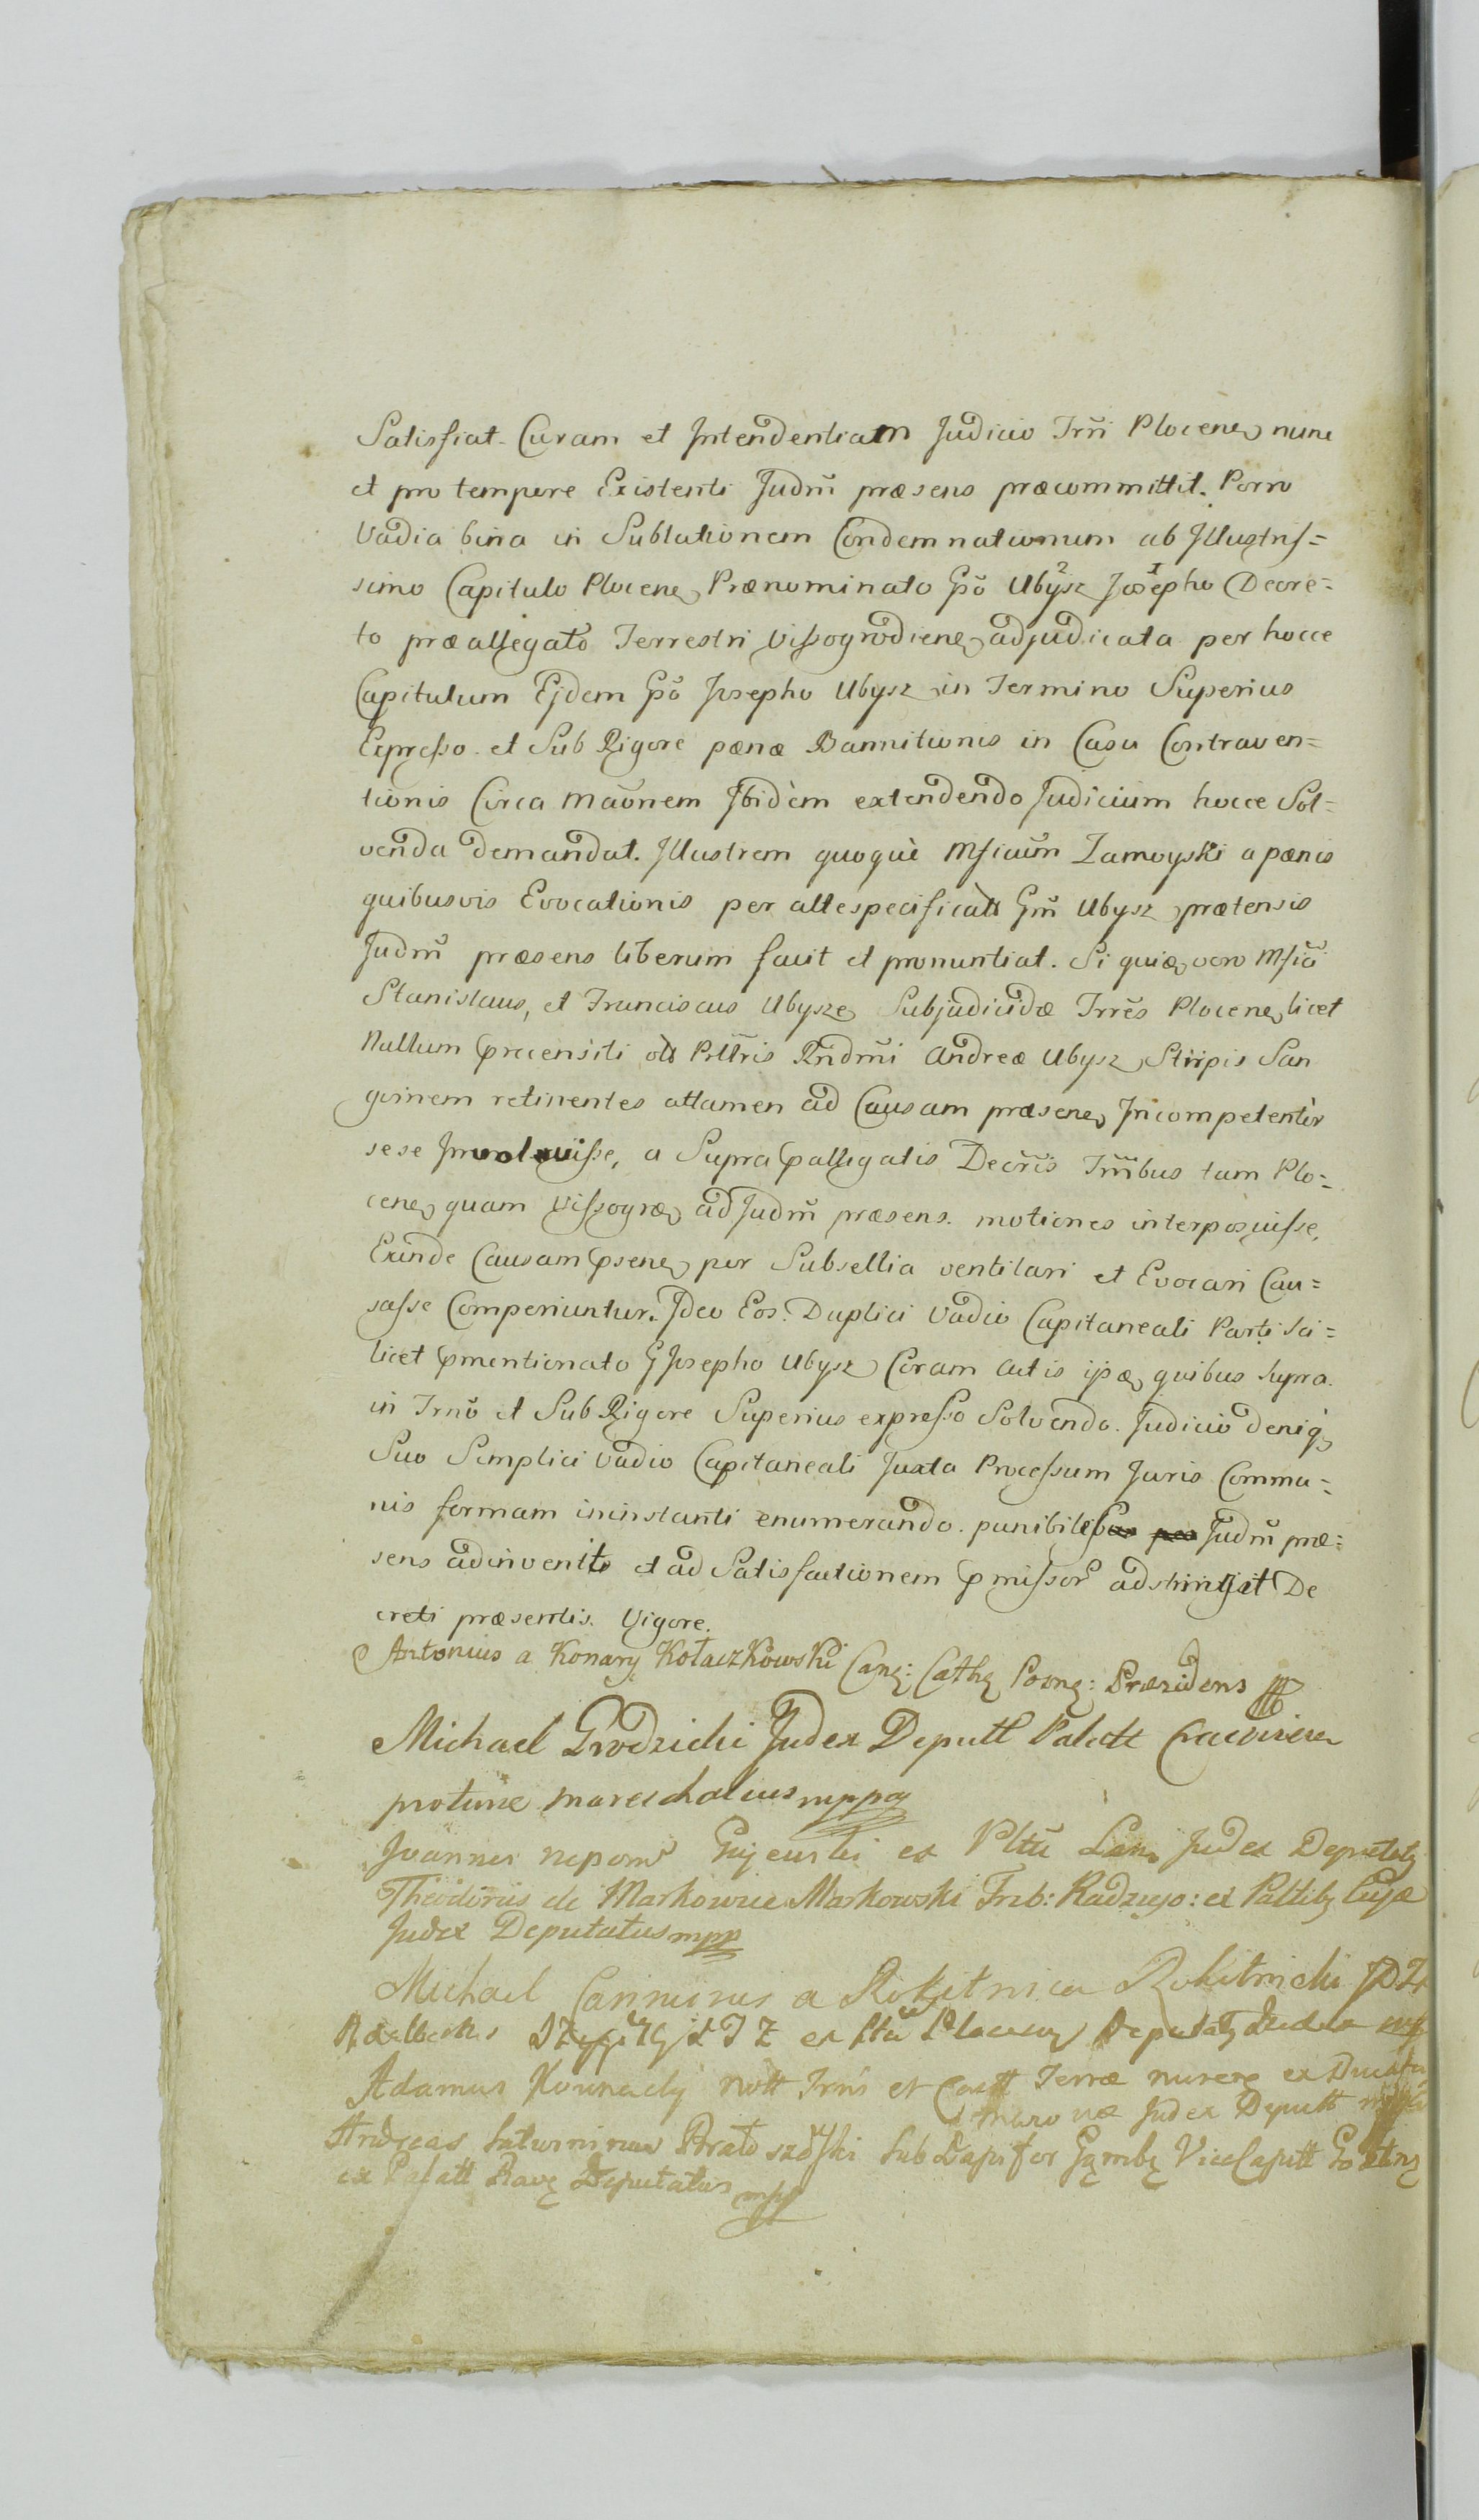 Satisfiat. Curam et Intendentiam Judicio Trr̃i Plocen. nunc
et pro tempore Existenti Judm̃ præsens præcommittit. Porro
Vadia bina in Sublationem Condemnationum ab Illustris=
simo Capitulo Plocen. Prænominato Gsõ Ubysz Josepho Decre=
to præallegato Terrestri Vissogrodien. adjudicata per hocce
Capitulum Ejdem Gsõ Josepho Ubysz in Termino Superius
Expresso. et Sub Rigore pænæ Bannitionis in Casu Contraven=
tionis Circa Maõnem Ibidem extendendo Judicium hocce Sol=
venda demandat. Illustrem quoquè Mficum̃ Zamoyski a pænis
quibusvis Evocationis per altespecificatt Gm̃ Ubysz prætensis
Judm̃ præsens liberum facit et pronuntiat. Si quiæ vero Mfici
Stanislaus, et Franciscus Ubysze Subjudicidæ Trrẽs Plocen. licet
Nullum præcensiti olt Prttris Rndm̃i Andreæ Ubysz Stirpis San
gvinem retinentes attamen ad Causam præsene Incompetentèr
sese Involvisse, a Supra pallegatis Decr̃is Trr̃ibus tam Plo=
cene quam Vissogræ ad Judm̃ præsens. motiones interposuisse,
Exinde Causam psene per Subsellia ventilari et Evocari Cau=
sasse Comperiuntur. Ideo Eos. Duplici Vadio Capitaneali Parti Sci=
licet pmentionato G Josepho Ubysz Coram Actis ijsæ quibus supra.
in Trnõ et Sub Rigore Superius expresso Solvendo. Judicio deniq
Suo Simplici Vadio Capitaneali Juxta Processum Juris Commu=
nis formam ininstanti enumerando. punibiles Judm̃ præ=
sens adinvenit et ad Satisfactionem pmissor adstringit De
creti præsentis. Vigore.
Antonius a Konary Kołaczkowski Can: Cath Posn: Præsidens
Michael Grodzicki Judex Deputt Palatt Cracoviene
protunc Mareschalcus mppa
Joannes nepom Gijewski ex Pltũ Lanc Judex Deputat
Theodorus de Markowice Markowski Trib: Radziejo: ex Paltib Cujæ
Judex Deputatus mpp
Michael Carimirus a Rokitnica Rokitnicki JDZ
Adalbertus ex Pltũ Plocen Deputat Judex mp
Adamus Kownacky nott Trr̃is et Castt Terræ nurene ex Ducatu
Maso væ Judex Deputt
Andreas Saturninus Bratoszewski SubDapifer Gąmb ViceCapitt Gostin
ex Palatt Rave Deputatus mpp